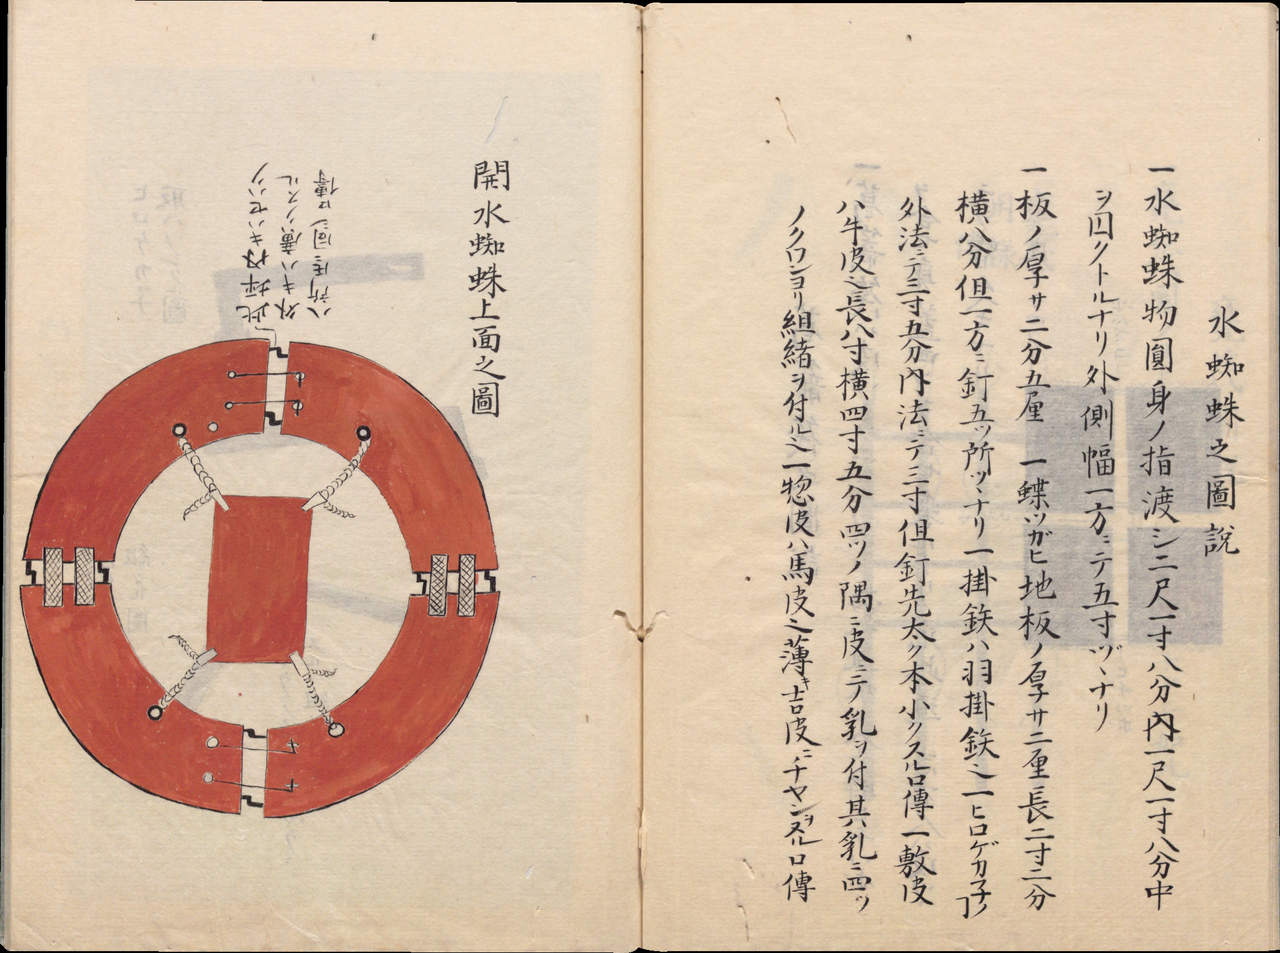 水蜘蛛之圖説
一水蜘蛛物圓身ノ指渡シ二尺一寸八分內一尺一寸八分中
ヲ囚クトルナリ外側幅一方ニテ五寸ヅヽナリ
一板ノ厚サ二分五厘 一蝶ツガヒ地板ノ厚サ二厘長二寸二分
橫八分但一方ニ釘五ツ所ツヽナリ一掛鉄ハ羽掛鉄之一ヒロゲカ子ノ丁
外法ニテ三寸五分內法ニテ三寸但釘先太ク本小クスル口傳一敷皮
ハ牛皮之長八寸橫四寸五分四ツノ隅ニ皮ニテ乳ヲ付其乳ニ四ツ
ノクワンヨリ組緒ヲ付ル之一惣皮ハ馬皮之薄キ吉皮ニチヤンヲヌル口傳
開水蜘蛛上面之圖
此坪內キハセハク
外キハ廣クスル
八所圧同シ口傳